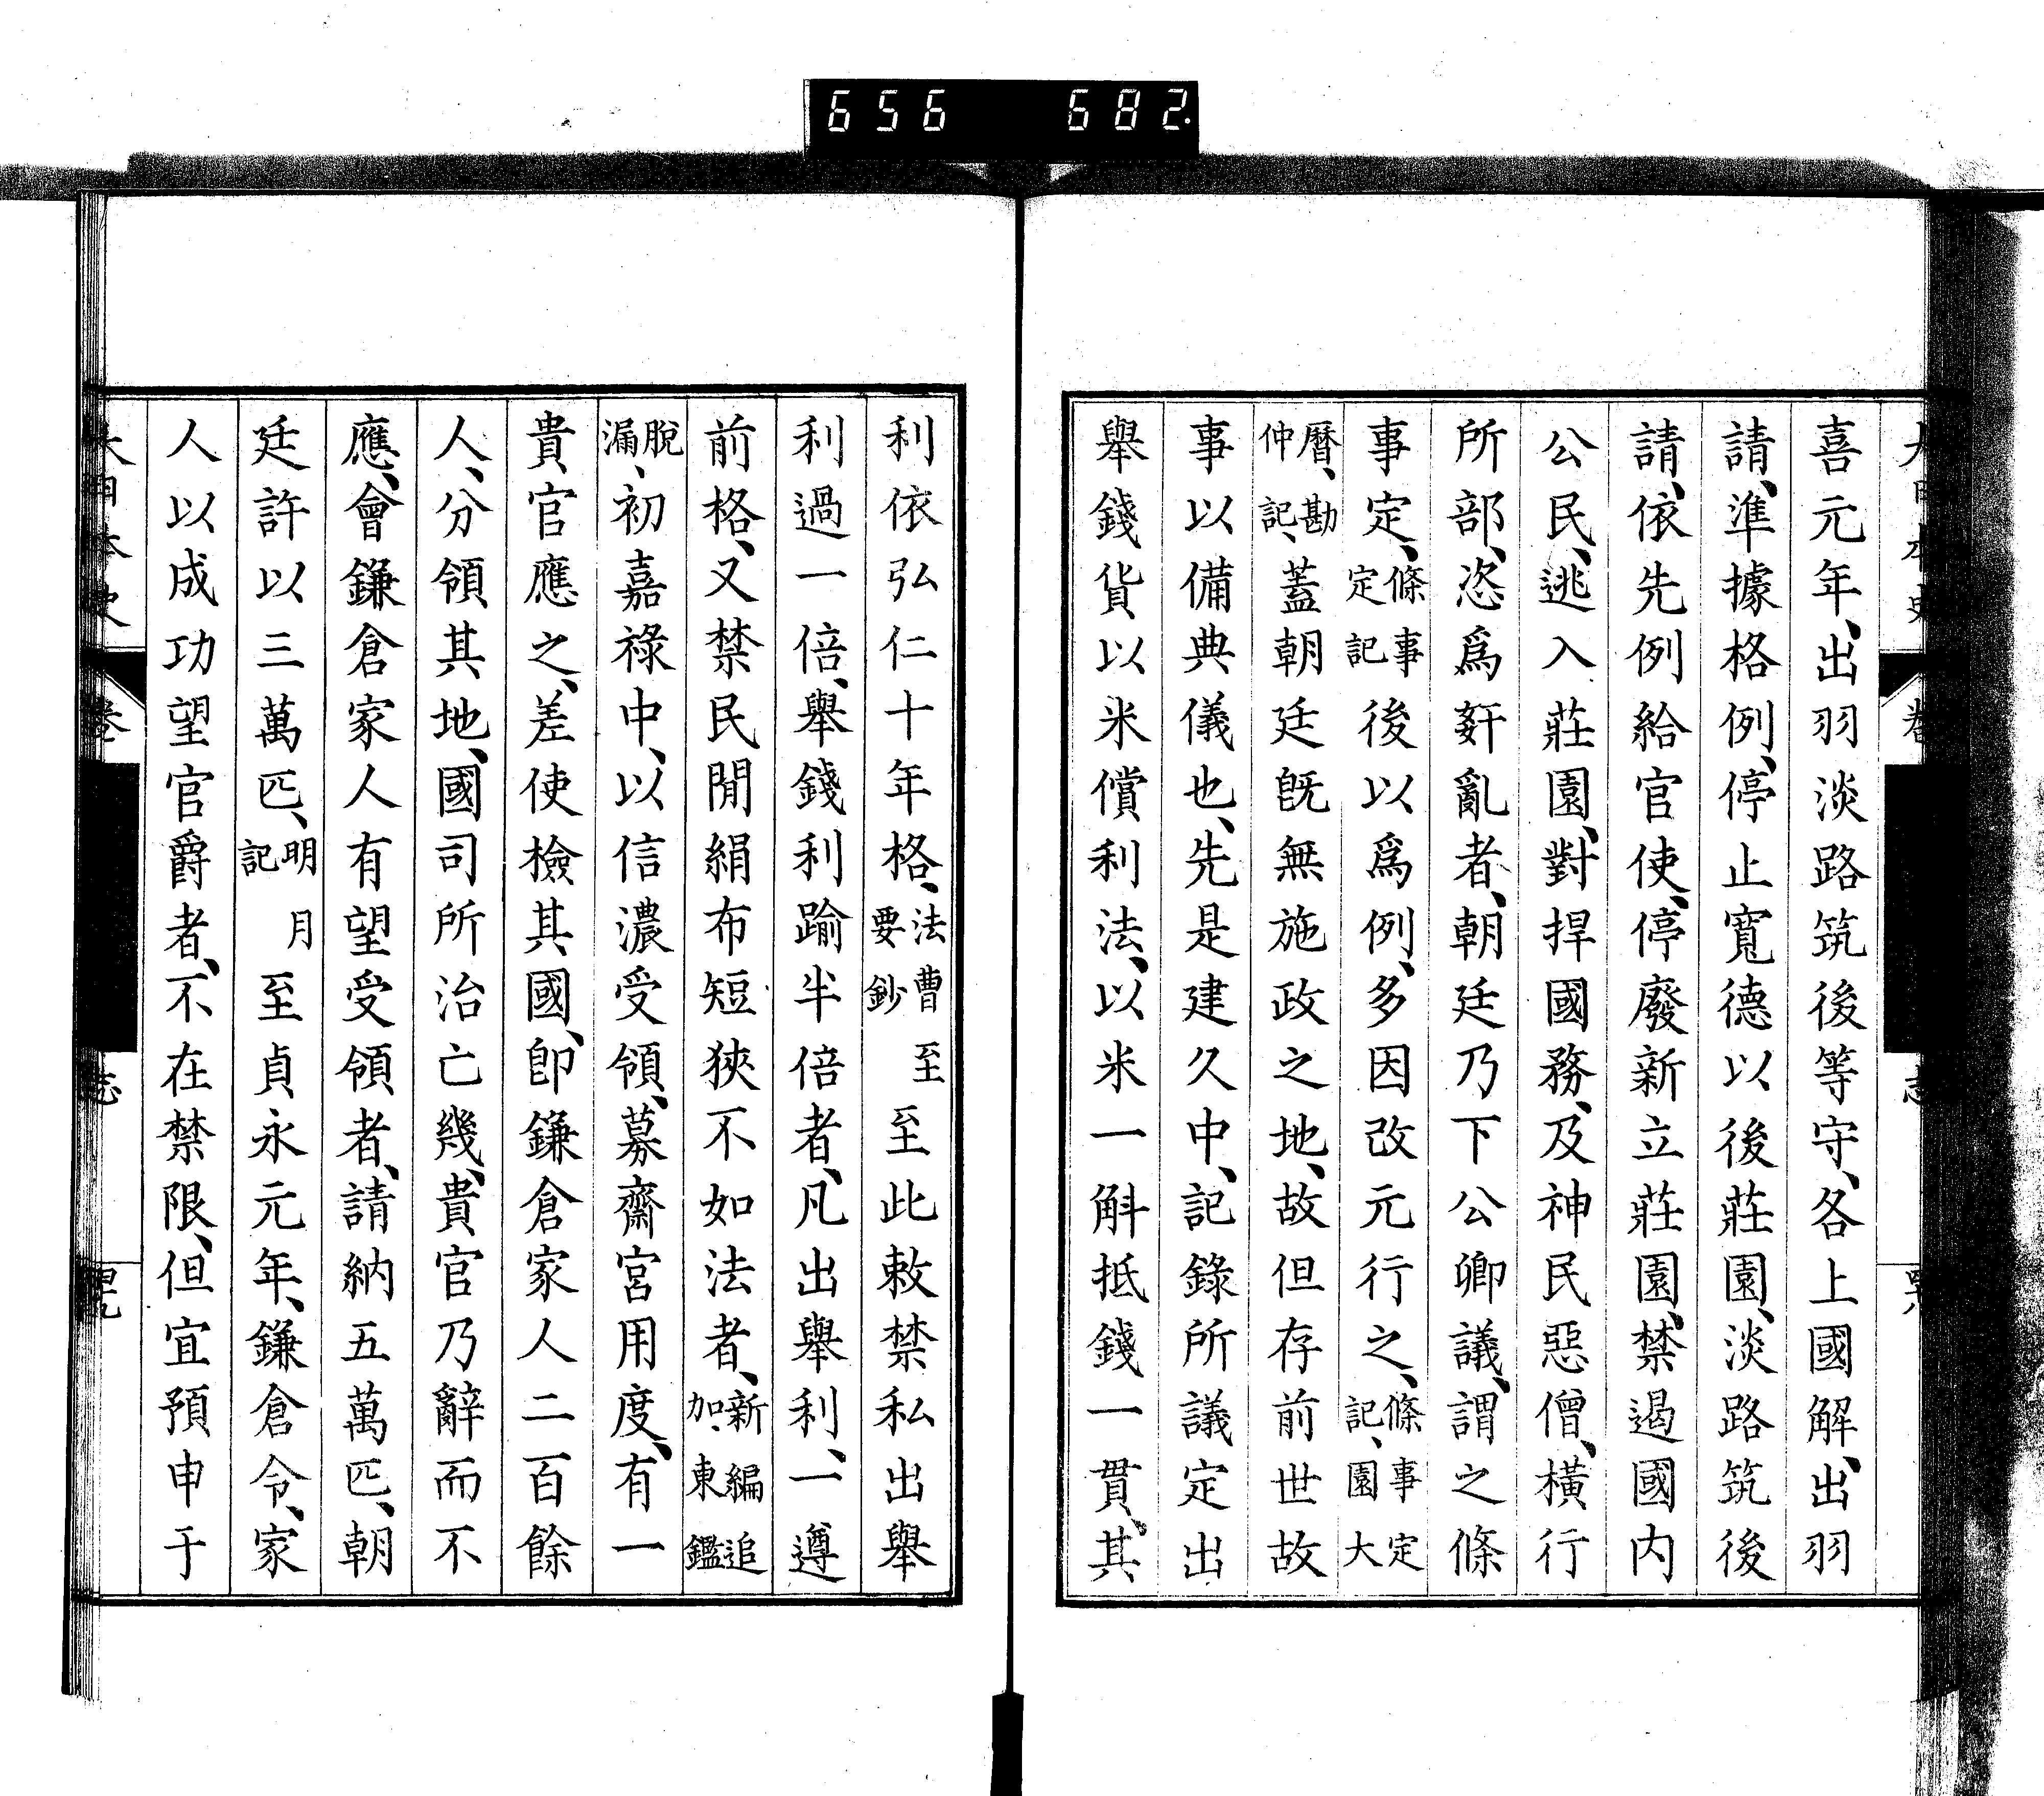 656 682.
喜元年、出羽淡路筑後等守、各上國解、出羽
請、準據格例、停止寬德以後莊園、淡路筑後
請、依先例給官使、停廢新立莊園、禁遏國内
公民、逃入莊園、對捍國務、及神民惡僧、橫行
所部、恣爲奸亂者、朝廷乃下公卿議、謂之條
事定、條事定記後以爲例、多因改元行之、條事定記、園大
曆、仲勘記、蓋朝廷既無施政之地、故但存前世故
事以備典儀也、先是建久中、記錄所議定出
舉錢貨以米償利法、以米一斛抵錢一貫、其
利依弘仁十年格、法曹至要鈔至此敕禁私出舉
利過一倍、舉錢利踰半倍者、凡出舉利、一遵
前格、又禁民閒絹布短狹不如法者、新編追加、東鑑
脫漏、初嘉祿中、以信濃受領、募齋宮用度、有一
貴官應之、差使檢其國、卽鎌倉家人二百餘
人、分領其地、國司所治亡幾、貴官乃辭而不
應、會鎌倉家人有望受領者、請納五萬匹、朝
廷許以三萬匹、明月記至貞永元年、鎌倉令、家
人以成功望官爵者、不在禁限、但宜預申于